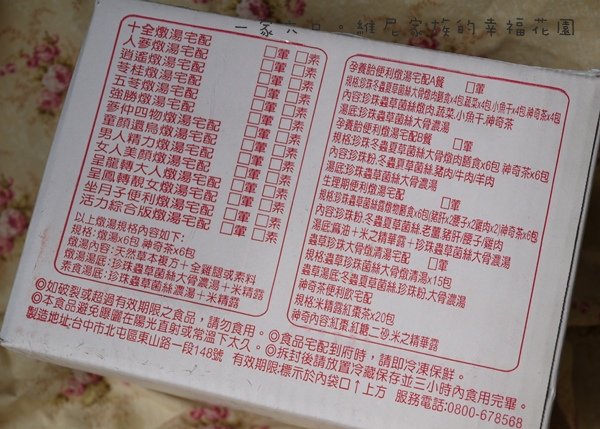 一家六口。維尼家族的幸福花園
十全燉湯宅配 □葷 □素
人蔘燉湯宅配 □葷 □素
逍遙燉湯宅配 □葷 □素
苓桂燉湯宅配 □葷 □素
五苓燉湯宅配 □葷 □素
強勝燉湯宅配 □葷 □素
蔘仲四物燉湯宅配 □葷 □素
童顏還烏燉湯宅配 □葷 □素
男人精力燉湯宅配 □葷 □素
女人美顏燉湯宅配 □葷 □素
呈龍轉大人燉湯宅配 □葷 □素
呈鳳轉靚女燉湯宅配 □葷 □素
坐月子便利燉湯宅配 □葷 □素
活力綜合版燉湯宅配 □葷 □素
以上燉湯規格內容如下:
規格:燉湯x6包 神奇茶x6包
燉湯內容:天然草本複方+全雞腿或素料
燉湯湯底:珍珠蟲草菌絲大骨濃湯+米精露
素食湯底:珍珠蟲草菌絲濃湯+米精露
孕養胎便利燉湯宅配A餐 □葷
規格珍珠冬蟲夏草菌絲大骨燉肉膳食x4包蔬菜x4包小魚干x4包 神奇茶x4包
內容珍珠冬蟲夏草菌絲燉肉,蔬菜,小魚干,神奇茶
湯底:珍珠蟲草菌絲大骨濃湯
孕養胎便利燉湯宅配B餐 □葷
規格:珍珠冬蟲夏草菌絲大骨燉肉膳食x6包 神奇茶x6包
內容珍珠粉.冬蟲夏草菌絲.豬肉/牛肉/羊肉
湯底珍珠蟲草菌絲大骨濃湯
生理期便利燉湯宅配 □葷
規格珍珠蟲草菌絲露燉物膳食x6包(豬肝x2腰子x2雞肉x2)神奇茶x6包
內容珍珠粉.冬蟲夏草菌絲.老薑.豬肝/腰子/雞肉
湯底:麻油+米之精華露+珍珠蟲草菌絲大骨濃湯
蟲草珍珠大骨燉清湯宅配 □葷
規格珍珠蟲草菌絲大骨燉清湯x15包
蟲草湯底:冬蟲夏草菌絲珍珠粉.大骨濃湯
神奇茶便利飲宅配
規格米精露紅棗茶x20包
神奇內容:紅棗.紅糖.二砂.米之精華露
◎如破裂或超過有效期限之食品，請勿食用。◎食品宅配到府時，請即冷凍保鮮。
◎本食品避免曝曬在陽光直射或常溫下太久。◎拆封後請放置冷藏保存並三小時內食用完畢。
製造地址:台中市北屯區東山路一段148號 有效期限:標示於內袋口↑上方 服務電話:0800-678568